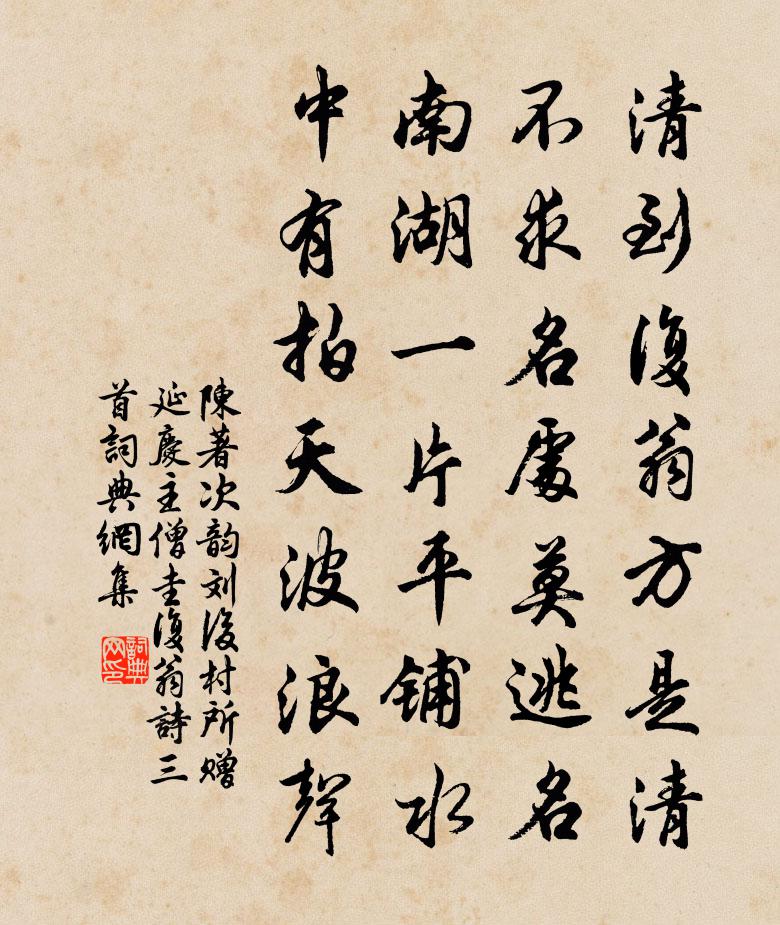 清到復翁方是清
不求名處莫逃名
南湖一片平鋪水
中有拍天波浪聲
陳著次韵刘後村所赠
延慶主僧圭復翁詩三
首詞典網集
詞典
网印